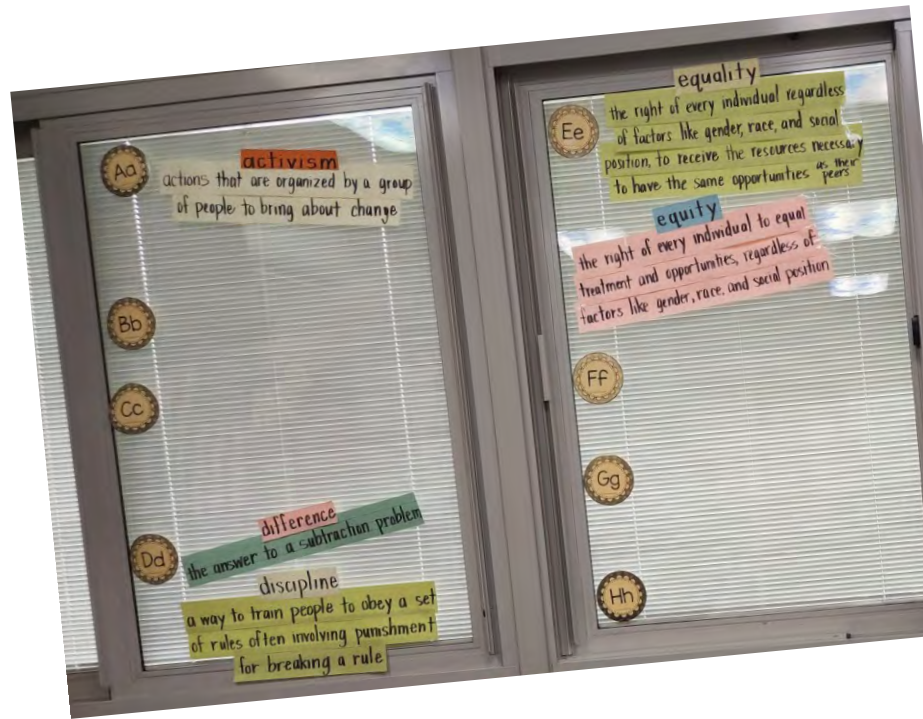 Aa
activism
actions that are organized by a group
of people to bring about change
Bb
Cc
Dd
difference
the answer to a subtraction problem
discipline
a way to train people to obey a set
of rules often involving punishment
for breaking a rule
equality
Ee
the right of every individual regardless
of factors like gender, race, and social
position, to receive the resources necessary
to have the same opportunities as their
peers
equity
the right of every individual to equal
treatment and opportunities, regardless of
factors like gender, race, and social position
Ff
Gg
Hh